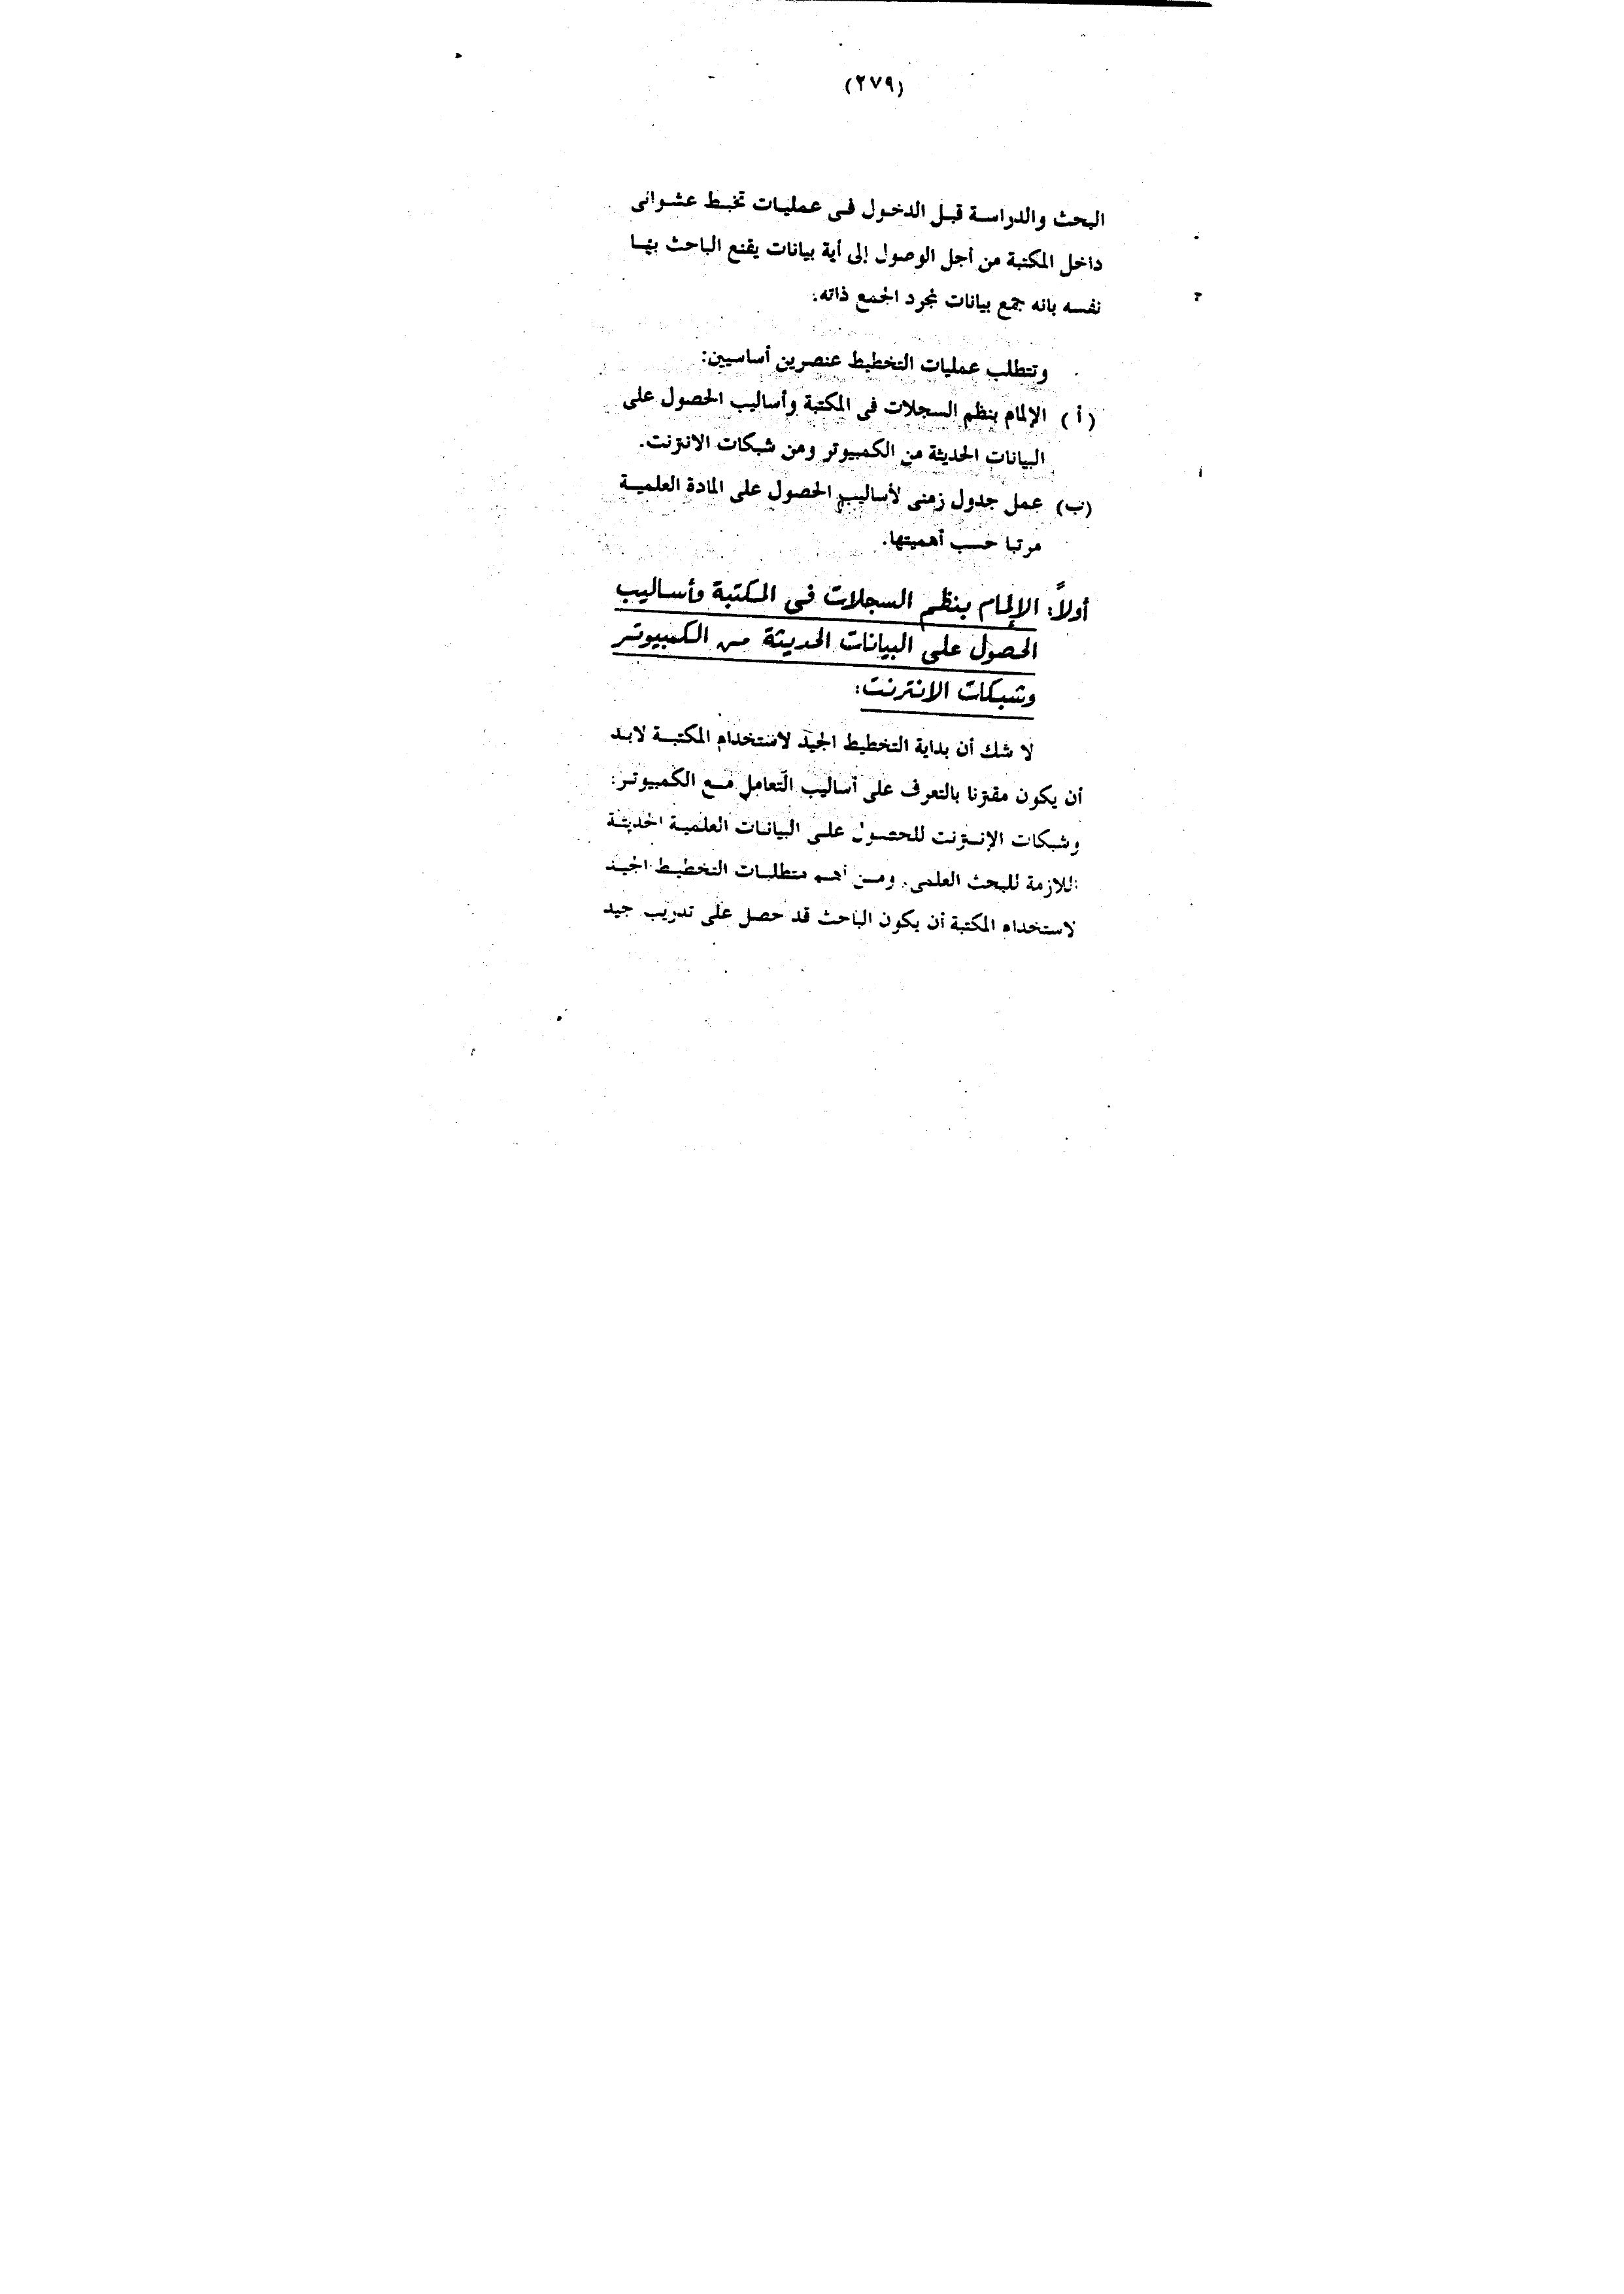 (٢٧٩)
البحث والدراسة قبل الدخول فى عمليات تخبط عشوائى
داخل المكتبة من أجل الوصول إلى أية بيانات يقنع الباحث بها
نفسه بانه جمع بيانات لمجرد الجمع ذاته.
وتتطلب عمليات التخطيط عنصرين أساسيين:
(أ) الإلمام بنظم السجلات فى المكتبة وأساليب الحصول على
البيانات الحديثة من الكمبيوتر ومن شبكات الانترنت.
(ب) عمل جدول زمنى لأساليب الحصول على المادة العلمية
مرتبا حسب أهميتها.
أولاً: الإلمام بنظم السجلات فى المكتبة وأساليب
الحصول على البيانات الحديثة من الكمبيوتر
وشبكات الانترنت:
لا شك أن بداية التخطيط الجيد لاستخدام المكتبة لابد
أن يكون مقترنا بالتعرف على أساليب التعامل مع الكمبيوتر
وشبكات الإنترنت للحصول على البيانات العلمية الحديثة
اللازمة للبحث العلمى. ومن أهم متطلبات التخطيط الجيد
لاستخدام المكتبة أن يكون الباحث قد حصل على تدريب جيد